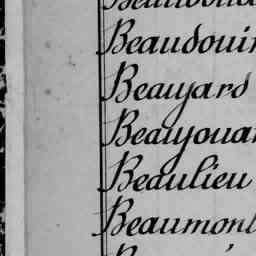 Beaudouin
Beaujard
Beaujouan
Beaulieu
Beaumont